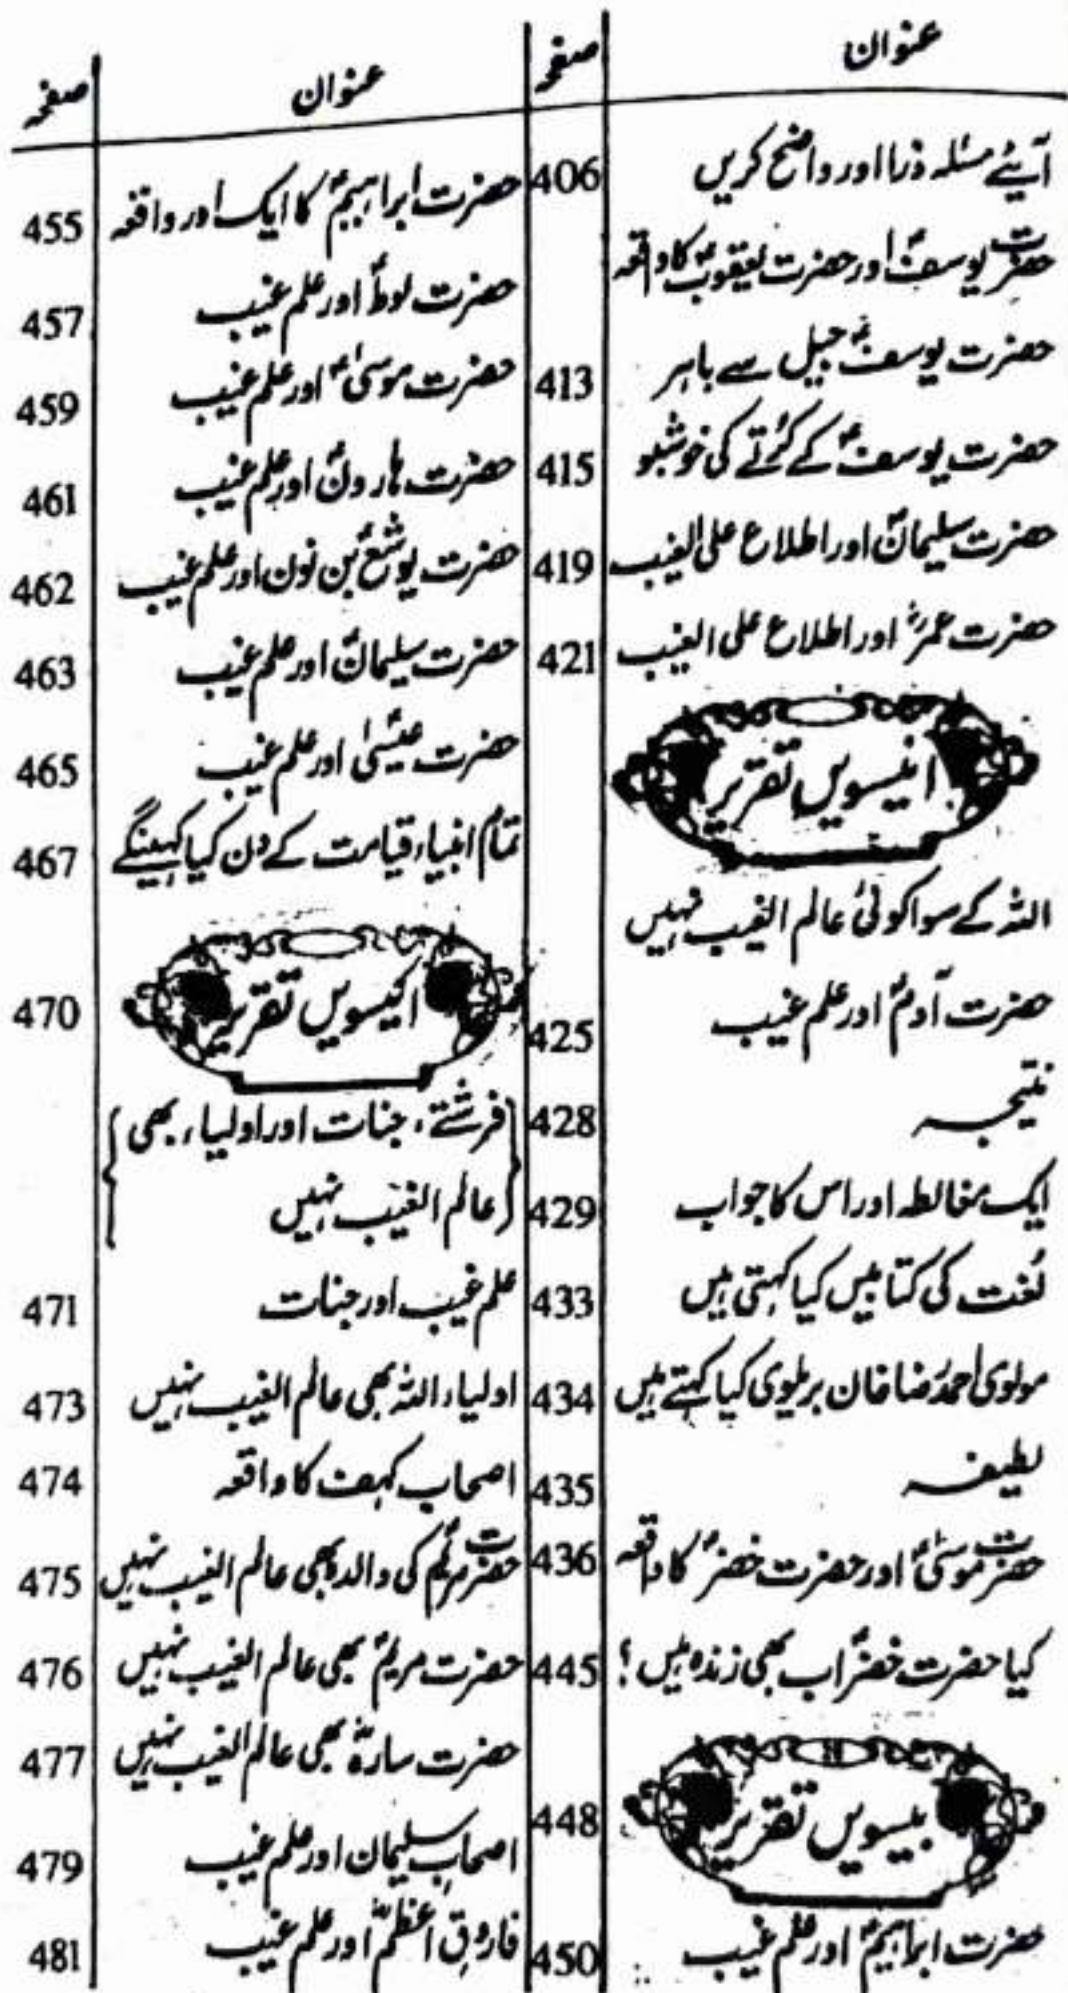 عنوان صفحہ
آیئے مسئلہ ذرا اور واضح کریں 406
حضرت یوسفؑ اور حضرت یعقوبؑ کا واقعہ
حضرت یوسفؑ جیل سے باہر 413
حضرت یوسفؑ کے کُرتے کی خوشبو 415
حضرت سلیمانؑ اور اطلاع علی الغیب 419
حضرت عمرؓ اور اطلاع علی الغیب 421
انیسویں تقریر
اللہ کے سوا کوئی عالم الغیب نہیں
حضرت آدمؑ اور علم غیب 425
نتیجہ 428
ایک مغالطہ اور اس کا جواب 429
لُغت کی کتابیں کیا کہتی ہیں 433
مولوی احمد رضا خان بریلوی کیا کہتے ہیں 434
لطیفہ 435
حضرت موسیٰؑ اور حضرت خضرؑ کا واقعہ 436
کیا حضرت خضرؑ اب بھی زندہ ہیں؟ 445
بیسویں تقریر 448
حضرت ابراہیمؑ اور علم غیب 450
عنوان صفحہ
حضرت ابراہیمؑ کا ایک اور واقعہ 455
حضرت لوطؑ اور علم غیب 457
حضرت موسیٰؑ اور علم غیب 459
حضرت ہارونؑ اور علم غیب 461
حضرت یوشعؑ بن نون اور علم غیب 462
حضرت سلیمانؑ اور علم غیب 463
حضرت عیسٰیؑ اور علم غیب 465
تمام انبیاء قیامت کے دن کیا کہینگے 467
اکیسویں تقریر 470
{فرشتے، جنات اور اولیاء بھی
عالم الغیب نہیں}
علم غیب اور جنات 471
اولیاء اللہ بھی عالم الغیب نہیں 473
اصحاب کہف کا واقعہ 474
حضرت مریمؑ کی والدہ بھی عالم الغیب نہیں 475
حضرت مریمؑ بھی عالم الغیب نہیں 476
حضرت سارہؓ بھی عالم الغیب نہیں 477
اصحابِ سلیمان اور علم غیب 479
فاروقِ اعظمؓ اور علم غیب 481